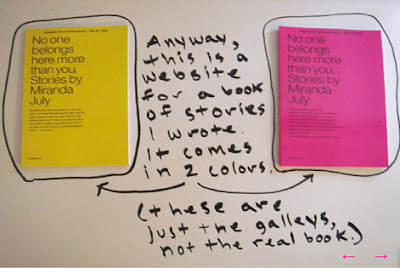 No one
belongs
here more
than you.
Stories by
Miranda
July
Anyway,
this is a
website
for a book
of stories
I wrote.
It comes
in 2 colors.
No one
belongs
here more
than you.
Stories by
Miranda
July
(these are
just the galleys,
not the real book.)
← →